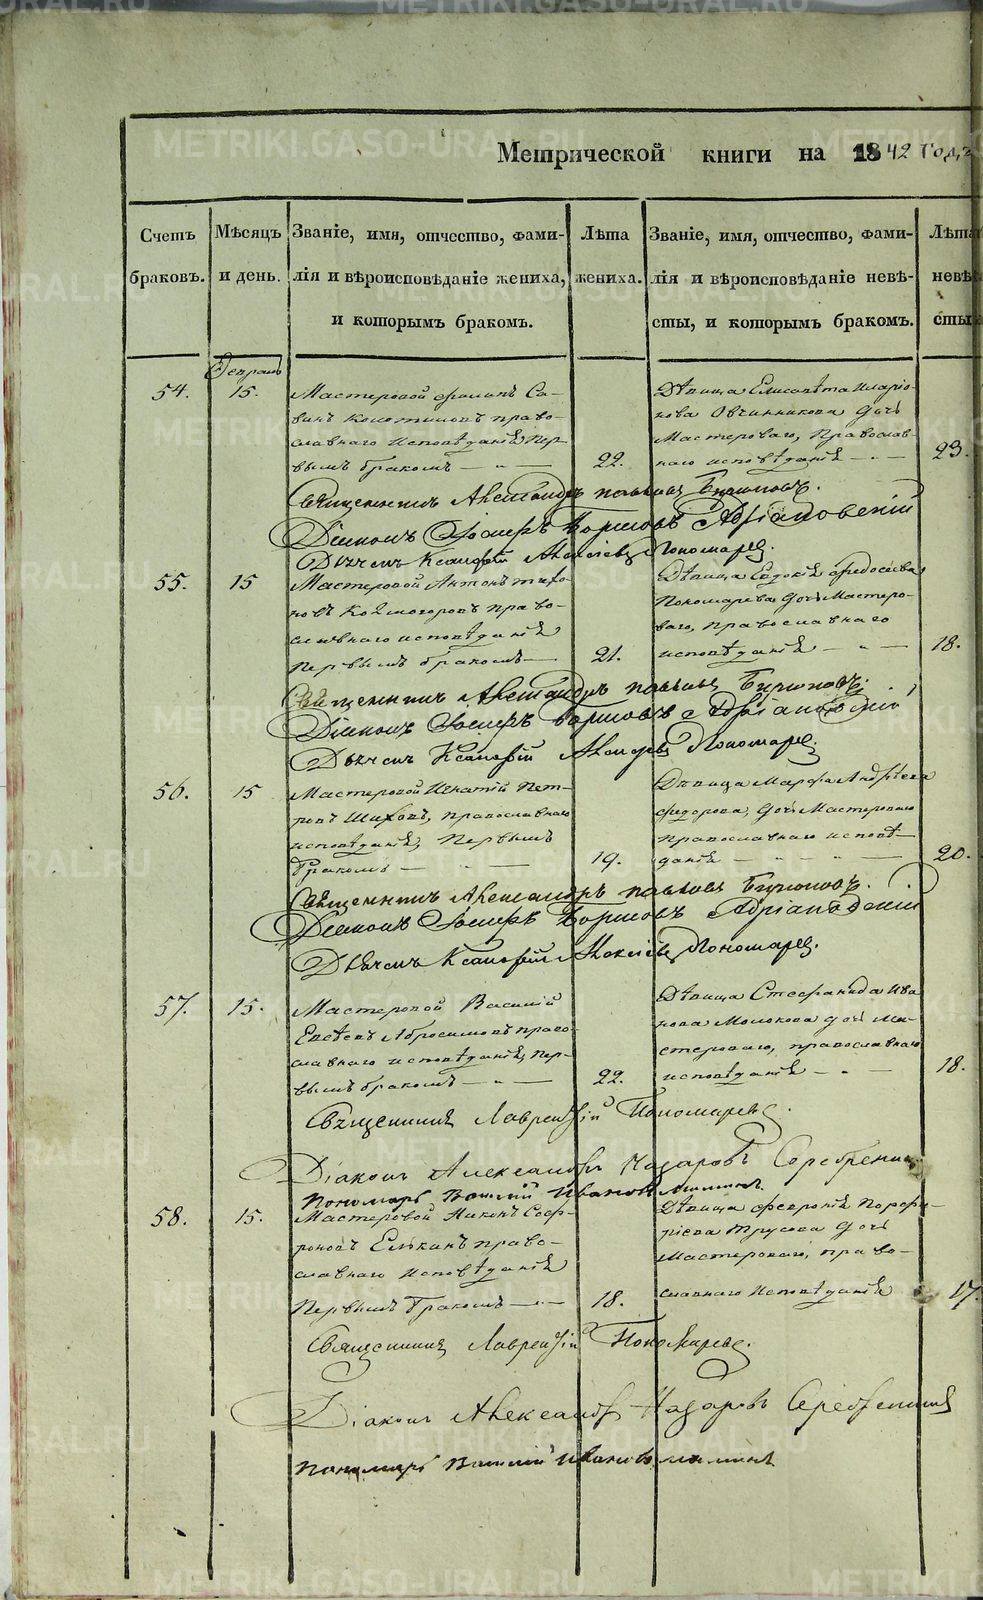 METRIKI.GASO-URAL.RU
Метрической книги на 1842 Годъ
Счетъ браковъ.
Мѣсяцъ и день.
Званіе, имя, отчество, фами-
лія и вѣроисповѣданіе жениха,
и которымъ бракомъ.
Лѣта жениха.
Званіе, имя, отчество, фами-
лія и вѣроисповѣданіе невѣ-
сты, и которымъ бракомъ.
Лѣта
невѣ
сты
54.
15.
Мастеровой
православнаго исповѣданія, Пер-
вымъ бракомъ
22.
Дѣвица Елисавета Иларіо-
нова Овчинникова дочь
Мастероваго, Православ-
наго исповѣданія
23.
Священникъ Александръ Павловъ Бирюковъ.
Діаконъ Іосифъ Борисовъ Адріановскій
Дьячекъ Ксенофій Алексіевъ Пономаревъ.
55.
15
Мастеровой Антонъ Тихо-
новъ Колмогоровъ право-
славнаго исповѣданія
Первымъ бракомъ
21.
Дѣвица Евдокія Федосеева
Пономарева дочь Мастеро-
ваго, православнаго
исповѣданія
18.
Священникъ Александръ Павловъ Бирюковъ.
Діаконъ Іосифъ Борисовъ Адріановскій
Дьячекъ Ксенофій Алексіевъ Пономаревъ.
56.
15
Мастеровой Игнатій Пет-
ровъ Шиховъ, православнаго
исповѣданія, Первымъ
бракомъ
19.
Дѣвица Марфа Андріева
Федорова, дочь Мастероваго
православнаго исповѣ-
данія
20.
Священникъ Александръ Павловъ Бирюковъ.
Діаконъ Іосифъ Борисовъ Адріановскій
Дьячекъ Ксенофій Алексіевъ Пономаревъ.
57.
15.
Мастеровой Василій
Евсѣевъ Абросимовъ право-
славнаго исповѣданія, Пер-
вымъ бракомъ
22.
Дѣвица Стефанида Ива
нова Молокова дочь Ма-
стероваго, православнаго
исповѣданія
18.
Священникъ Лаврентій Пономаревъ.
Діаконъ Александръ Назаровъ Серебрениковъ
Пономарь Василій Ивановъ Маминъ.
58.
15.
Мастеровой Никонъ Соф-
роновъ право-
славнаго Исповѣданія
Первымъ бракомъ
18.
Дѣвица Февронія Порфи-
ріева Трусова дочь
Мастероваго, право-
славнаго Исповѣданія
17.
Священникъ Лаврентій Пономаревъ.
Діаконъ Александръ Назаровъ Серебрениковъ
Пономарь Василій Ивановъ Маминъ